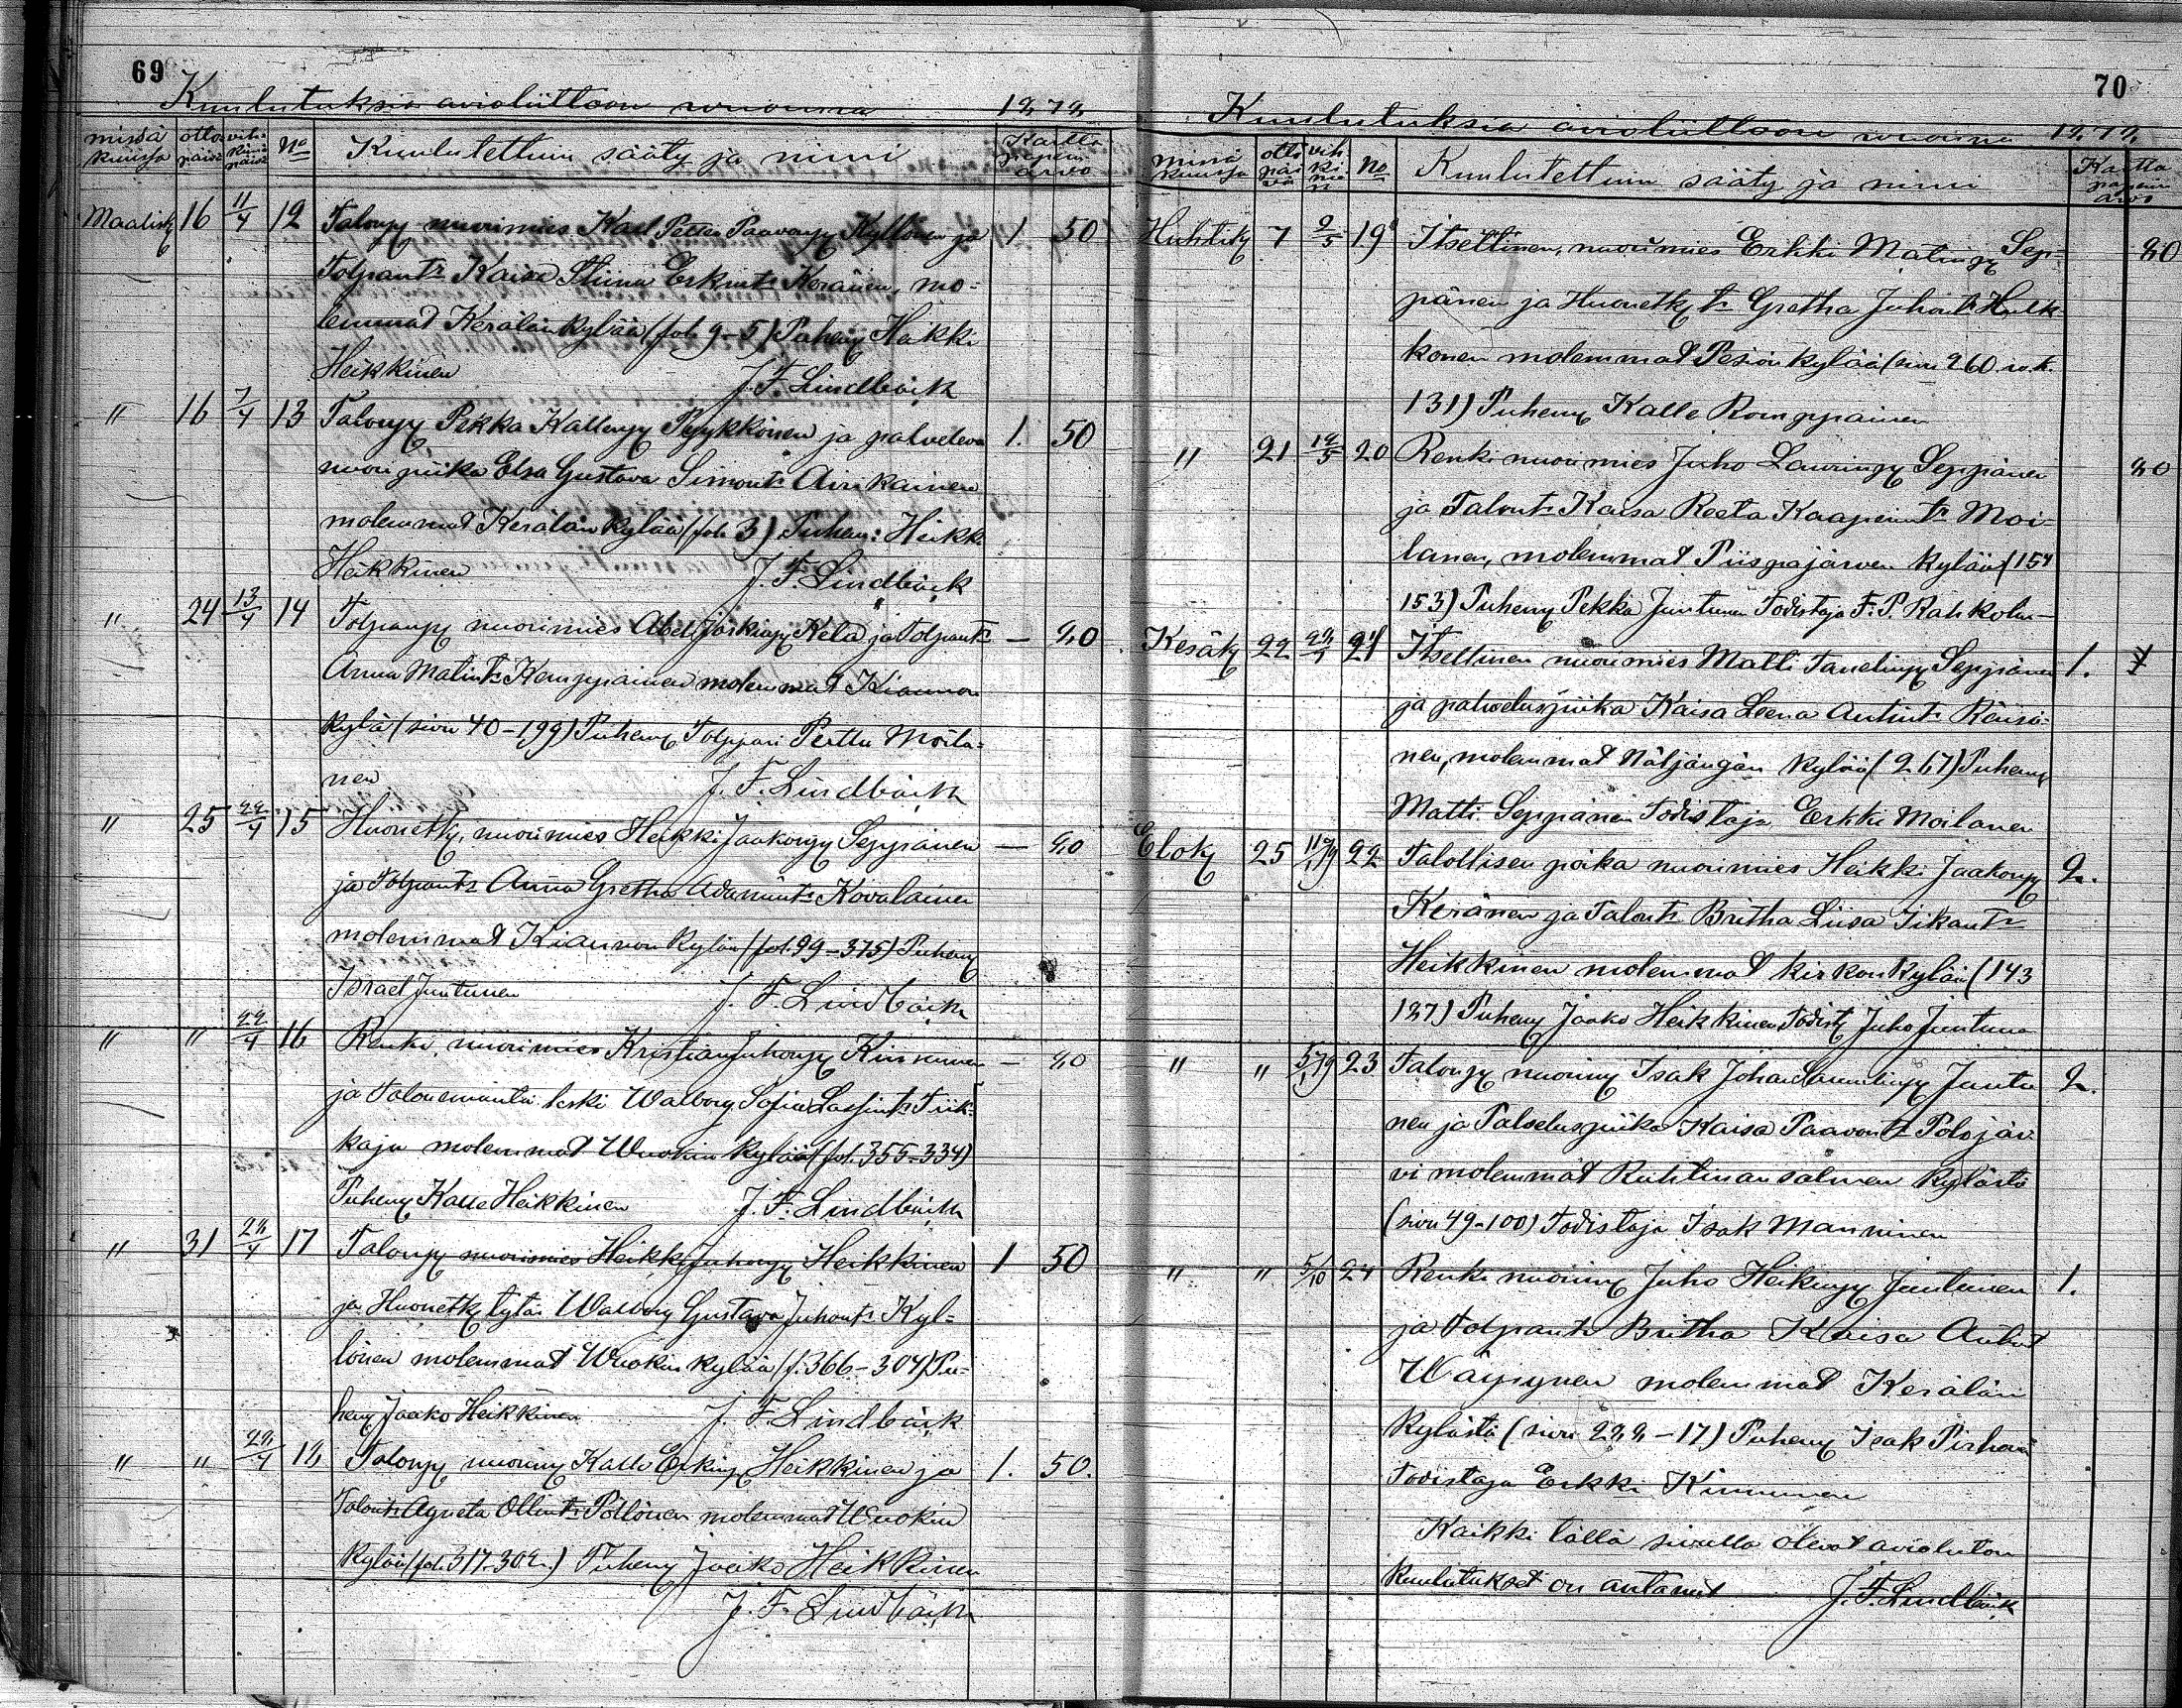 69
Kuulutuksia avioliittoon vuonna 1878
missä kuussa otto päivä vihkimä päivä No Kuulutettuin sääty ja nimi Kartta paperin arvo
Maalisk 16 11/4 12 Talonp nuorimies Karl Petter Paavonp Kyllönen ja 1 50
Tolpantr Kaisa Stiina Erkint: Keränen, mo-
lemmat Kerälän kylää (fol. 9-5) Puhem Heikki
Heikkinen J. F. Lindbäck
" 16 7/4 13 Talonp Pekka Kallenp Pyykkönen ja palveleva 1. 50
nuori piika Elsa Gustava Simont: Airikainen
molemmat Kerälän kylää (fol. 3) Puhem: Heikki
Heikkinen J. F. Lindbäck
" 24 13/4 14 Tolpanp nuorimies Abel Kela ja Tolpantr — 80
Anna Matint: Kemppainen molemmat Kiannon
kylä (sivu 40-199) Puhem Tolppari Perttu Moila-
nen J. F. Lindbäck
" 25 22/4 15 Huonetky, nuorimies Heikki Jaakonp Seppänen — 80
ja Tolpantr Anna Gretha Adamint: Kovalainen
molemmat Kiannon kylän (fol. 99-375) Puhem
Israel Juntunen J. F. Lindbäck
" " 22/4 16 Renki, nuorimies Kristian Juhonp Kinnunen — 80
ja Talonemäntä leski Walborg Sofia Lassint: Tiik-
kaja molemmat Wuokin kylää (fol. 355-334)
Puhem Kalle Heikkinen J. F. Lindbäck
" 31 28/4 17 Talonp nuorimies Heikki Juhonp Heikkinen 1 50
ja Huonetk tytär Walborg Gustava Juhont: Kyl-
lönen molemmat Wuokin kylää (f. 366-304) Pu-
hem Jaako Heikkinen J. F. Lindbäck
" " 28/4 18 Talonp nuorim Kalle Erkinp Heikkinen ja 1. 50.
Talont: Agneta Ollint: Pöllönen molemmat Wuokin
kylää (fol. 317-308) Puhem Jaako Heikkinen
J. F. Lindbäck
70
Kuulutuksia avioliittoon vuonna 1878
missä kuussa otto päivä vihkimän No Kuulutettuin sääty ja nimi Kartta paperin arvo
Huhtik 7 9/5 19 Itsellinen, nuorimies Erkki Matinp Sep- 80
pänen ja Huonetk tr Gretha Juhont: Hulk-
konen molemmat Pesiön kylää (sivu 260
131) Puhem Kalle Romppainen
" 21 12/5 20 Renki nuorimies Juho Laurinp Seppänen 80
ja Talont: Kaisa Reeta Kaaperintr Moi-
lanen, molemmat Piispajärven kylää (157
153) Puhem Pekka Juntunen Todistaja F. P.
Kesäk 22 28/7 21 Itsellinen nuorimies Matti Tanelinp Seppänen 1.
ja palveluspiika Kaisa Leena Antint: Räisä-
nen, molemmat Näljängän kylää (267) Puhem
Matti Seppänen Todistaja Erkki Moilanen
Elok 25 22 Talollisen poika nuorimies Heikki Jaakonp 2.
Keränen ja Talont: Britha Liisa Iikantr
Heikkinen molemmat kirkonkylän (143
127) Puhem Jaako Heikkinen Todist Juho Juntunen
" " 23 Talonp nuorim Isak Johan Juntu 2.
nen ja Palveluspiika Kaisa Paavontr Polojär
vi molemmat Ruhtinansalmen kylästä
(sivu 49-100) Todistaja Isak Manninen
" " 5/10 24 Renki nuorim Juho Heikinp Juntunen 1.
ja Tolpantr Britha Kaisa
Wäyrynen molemmat Kerälän
kylästä (sivu 228-17) Puhem Isak Pirhonen
Todistaja Erkki Kinnunen
Kaikki tällä sivulla olevat avioliiton
kuulutukset on antanut J. F. Lindbäck